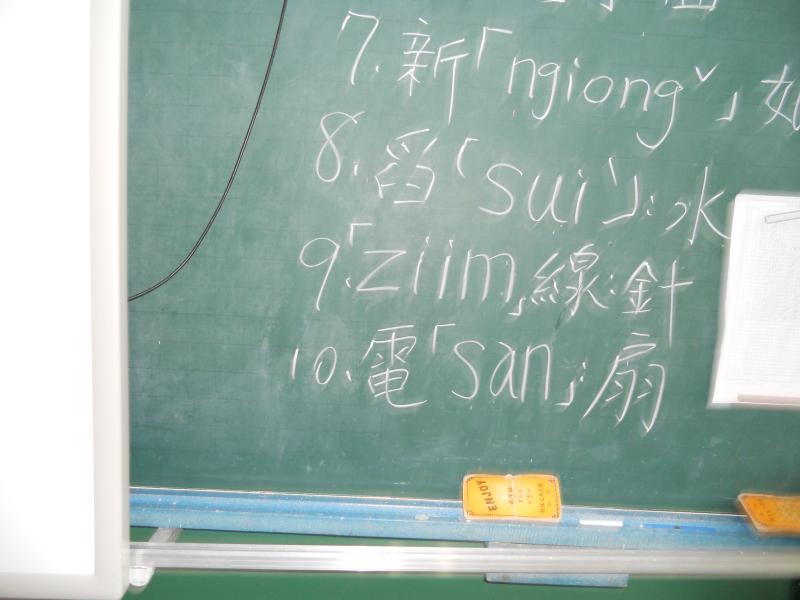 7.新「ngiongˇ」
8.舀「suiˋ」:水
9.「ziim」線:針
10.電「san」:扇
ENJOY